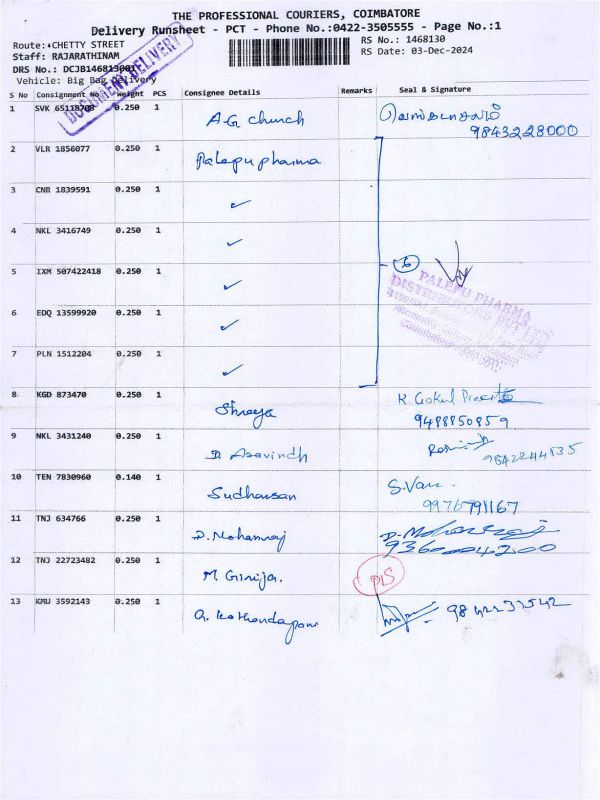 THE PROFESSIONAL COURIERS, COIMBATORE
Delivery Runsheet - PCT - Phone No.:0422-3505555 - Page No.:1
Route:•CHETTY STREET
RS No.: 1468130
Staff: RAJARATHINAM
RS Date: 03-Dec-2024
DRS No.: DCJB146813001
Vehicle: Big Bag Delivery
DOCUMENT DELIVERY
S No Consignment No Weight PCS Consignee Details Remarks Seal & Signature
1 SVK 65118708 0.250 1 A.G church
9843228000
2 VLR 1856077 0.250 1 Palepu pharma
3 CNR 1839591 0.250 1 ✓
4 NKL 3416749 0.250 1 ✓
5 IXM 507422418 0.250 1 ✓
6
PALEPU PHARMA
DISTRIBUTORS PVT LTD
6 EDQ 13599920 0.250 1 ✓
7 PLN 1512204 0.250 1 ✓
8 KGD 873470 0.250 1 Shreya K. Gokul
9488850859
9 NKL 3431240 0.250 1 D. Aravindh
9842244835
10 TEN 7830960 0.140 1 Sudharsan S. Van
9976791167
11 TNJ 634766 0.250 1 D. Mohanraj D. Mohanraj
9360004200
12 TNJ 22723482 0.250 1 M. Girija. DIS
13 KMU 3592143 0.250 1 G. Kothandapani 9842233542